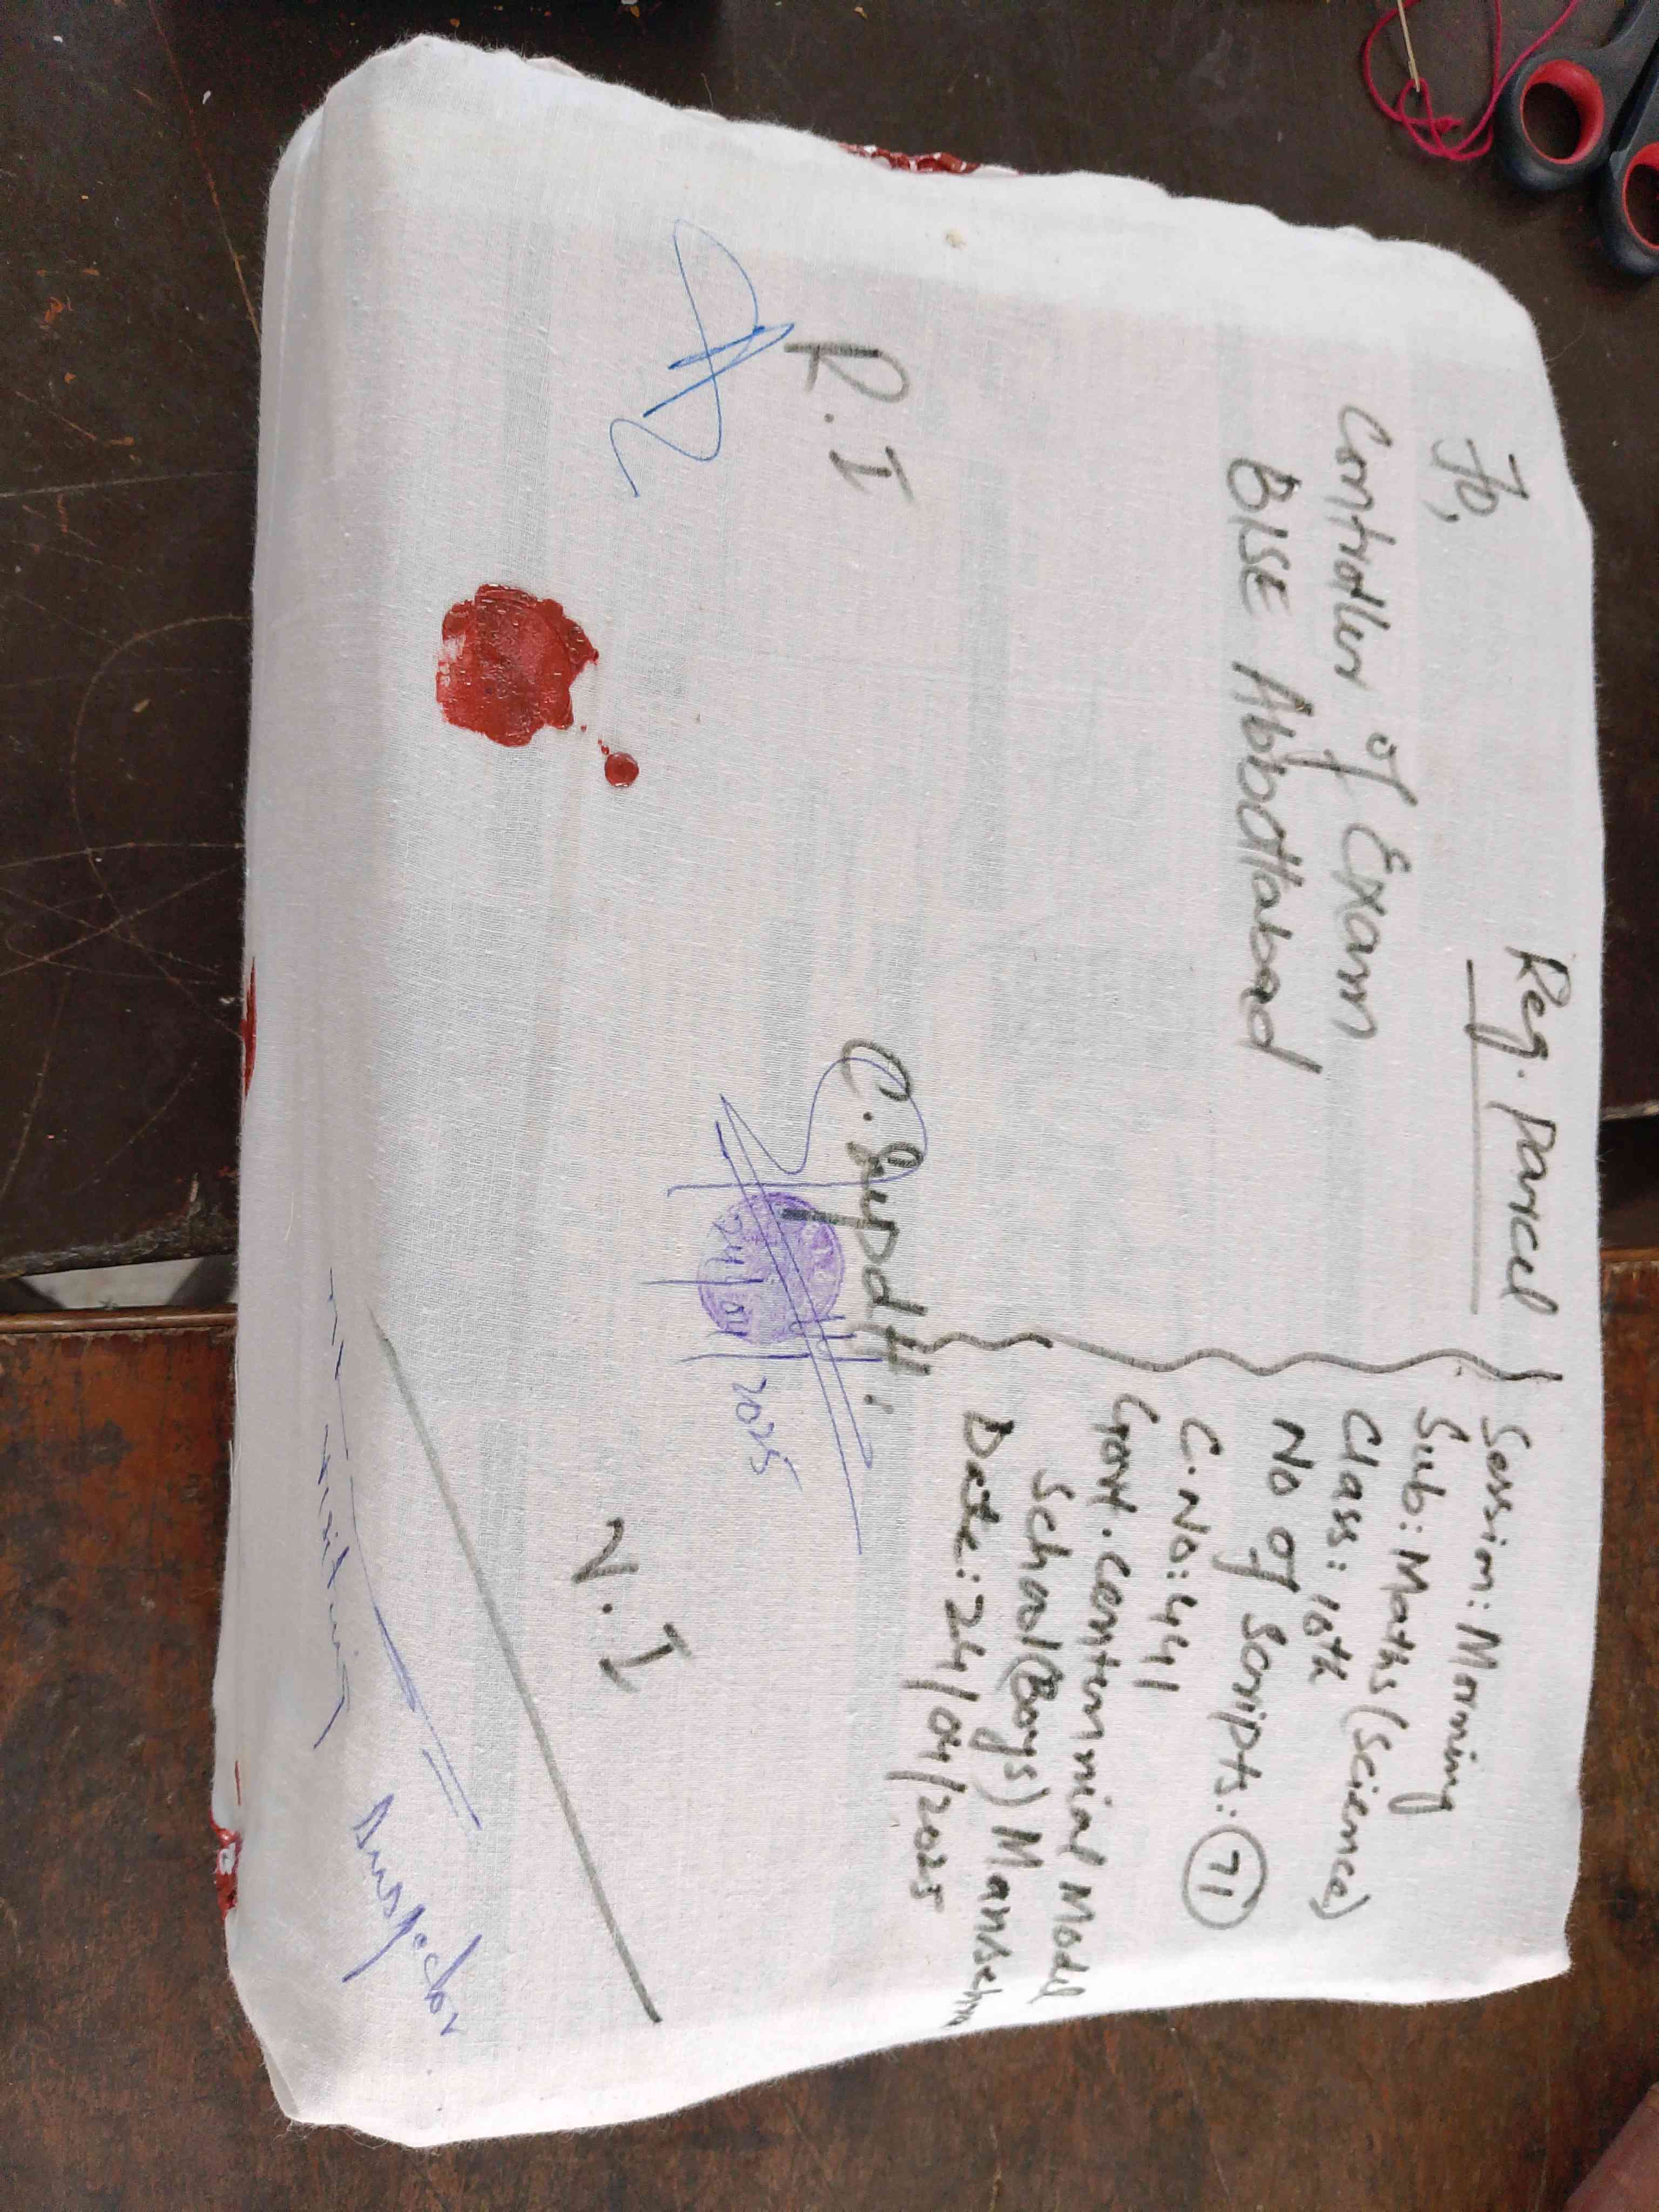 Reg. Parcel
To,
Controller of Exam
BISE Abbottabad
Session: Morning
Sub: Maths (Science)
Class: 10th
No of Scripts: 71
C.No: 441
Govt. Centennial Model
School (Boys) Mansehra
Date: 24/04/2025
R.I
C. Supdtt.
24/04/2025
N.I
Inspector